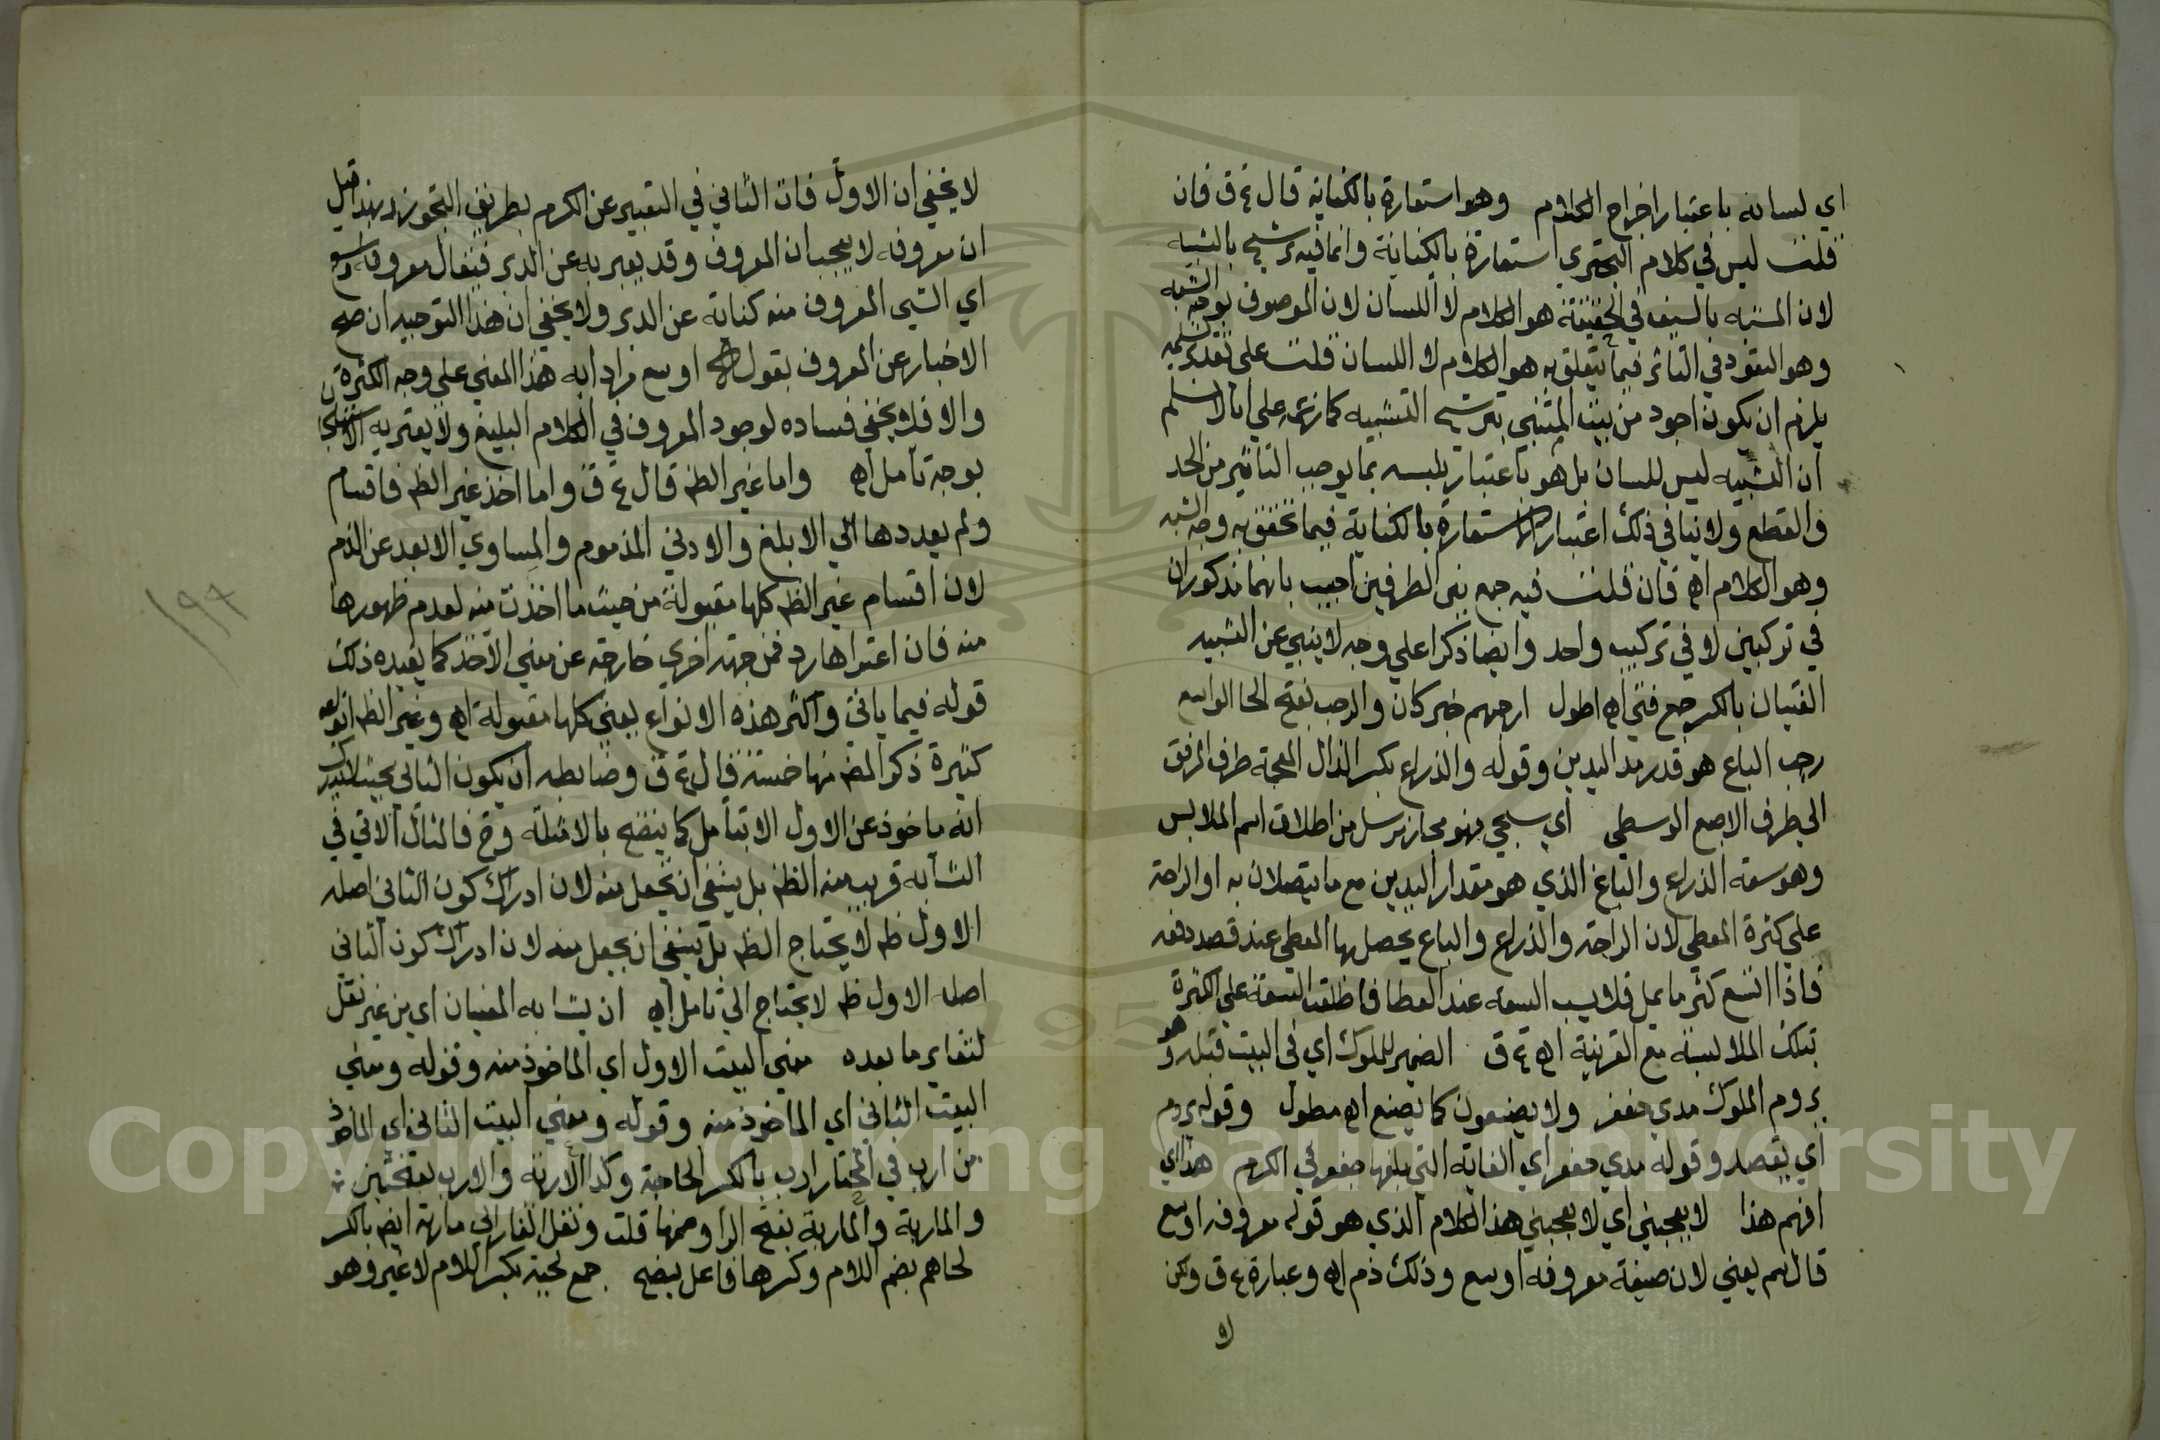 اي لسانه باعتبار اخراج الكلام وهو استعارة بالكناية قال ع ق فان
قلت ليس في كلام البحتري استعارة بالكناية وانما فيه ترشيح بالشبه
لان المشبه بالسيف في الحقيقة هو الكلام لا اللسان لان الموصوف بوجه الشبه
وهو النفوذ في التاثر فيما يتعلق به هو الكلام لا اللسان قلت على تقدير تسليمه
يلزم ان يكون اجود من بيت المتنبي بترشيح التشبيه كما زعمه على انا لا نسلم
ان التشبيه ليس للسان بل هو باعتبار تلبسه بما يوجب التاثير من الحد
والقطع ولا ينافي ذلك اعتبار الاستعارة بالكناية فيما تحقق به وجه الشبه
وهو الكلام اه فان قلت فيه جمع بين الطرفين اجيب بانهما مذكوران
في تركيبين لا في تركيب واحد وايضا ذكرا على وجه لا ينبي عن التشبيه
الفتيان بالكسر جمع فتي اه اطول ارحبهم خبر كان والرحب بفتح الحا الواسع
رحب الباع هو قدر مد اليدين وقوله والذراع بكسر الذال المعجمة طرف المرفق
الى طرف الاصبع الوسطي اي سيجي فهو مجاز مرسل من اطلاق اسم الملابس
وهو سعة الذراع والباع الذي هو مقدار اليدين مع ما يتصلان به او الراحة
على كثرة المعطي لان الراحة والذراع والباع يحصل بها المعطي عند قصد دفعه
فاذا اتسع كثر ما يملا فلابس السعة عند العطا فاطلقت السعة على الكثرة
بتلك الملابسة مع القرينة اه ع ق الضمير للملوك اي في البيت قبله وهو
يروم الملوك مدي جعفر ولا يصنعون كما يصنع اه مطول وقوله يروم
اي يقصد وقوله مدي جعفر اي الغاية التي بلغها جعفر في الكرم هذا اي
افهم هذا لا يعجبني اي لا يعجبني هذا الكلام الذي هو قوله معروفه اوسع
قال سم يعني لان صيغة معروفه اوسع وذلك ذم اه وعبارة ع ق ولكن
لا
لا يخفي ان الاول فات الثاني في التعبير عن الكرم بطريق التجوز وبهذا قيل
ان معروفه لا يعجب ان المعروف وقد يعبر به عن الدبر فيقال معروفه واسع
اي الشي المعروف منه كناية عن الدبر ولا يخفي ان هذا التوجيه ان صح
الاخبار عن المعروف بقول اوسع مرادا به هذا المعني على وجه الكثرة
والا فلا يخفي فساده لوجود المعروف في الكلام البليغ ولا يعتريه
بوجه تامل اه واما غير الظ قال ع ق واما اخذ غير الظ فاقسام
ولم يعددها الى الابلغ والادني المذموم والمساوي الابعد عن الذم
لان اقسام غير الظ كلها مقبولة من حيث ما اخذت منه لعدم ظهورها
منه فان اعتراها رد فمن جهة اخري خارجة عن معني الاخذ كما يفيده ذلك
قوله فيما ياتي واكثر هذه الانواع يعني كلها مقبولة اه وغير الظ انواعه
كثيرة ذكر المص منها خمسة قال ع ق وضابطه ان يكون الثاني بحيث لا يدرك
انه ماخوذ عن الاول الا بتامل كما يتضح بالامثلة وح فالمثال الاتي في
التشابه قريب منه الظ بل ينبغي ان يجعل منه لان ادراك كون الثاني اصله
الاول ظ لا يحتاج الظ بل ينبغي ان يجعل منه لان ادراك كون الثاني
اصله الاول ظ لا يحتاج الى تامل اه ان يتشابه المعنيان اي من غير نقل
لتغاير ما بعده معني البيت الاول اي الماخوذ منه وقوله ومعني
البيت الثاني اي الماخوذ منه وقوله ومعني البيت الثاني اي الماخوذ
من ارب في المختار ارب بالكسر الحاجة وكذا الاربة والارب بفتحتين
والماربة والماربة بفتح الرا وضمها قلت ونقل الفارابي ماربة ايض بالكسر
لحاهم بضم اللام وكسرها فاعل يمنع جمع لحية بكسر اللام لا غير وهو
١٩٢